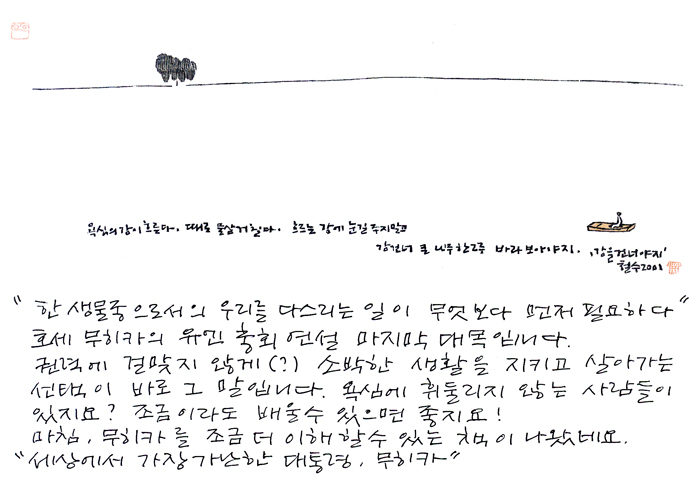 욕심의 강이 흐른다. 때로 물살 거칠다. 흐르는 강에 눈길 주지 말고
강 건너 큰 나무 한 그루 바라보아야지. '강을 건너야지'
철수 2001
"한 생물종으로서의 우리를 다스리는 일이 무엇보다 먼저 필요하다"
호세 무히카의 유엔 총회 연설 마지막 대목입니다.
권력에 걸맞지 않게(?) 소박한 생활을 지키고 살아가는
선택이 바로 그 말입니다. 욕심에 휘둘리지 않는 사람들이
있지요? 조금이라도 배울 수 있으면 좋지요!
마침, 무히카를 조금 더 이해할 수 있는 책이 나왔네요.
"세상에서 가장 가난한 대통령, 무히카"